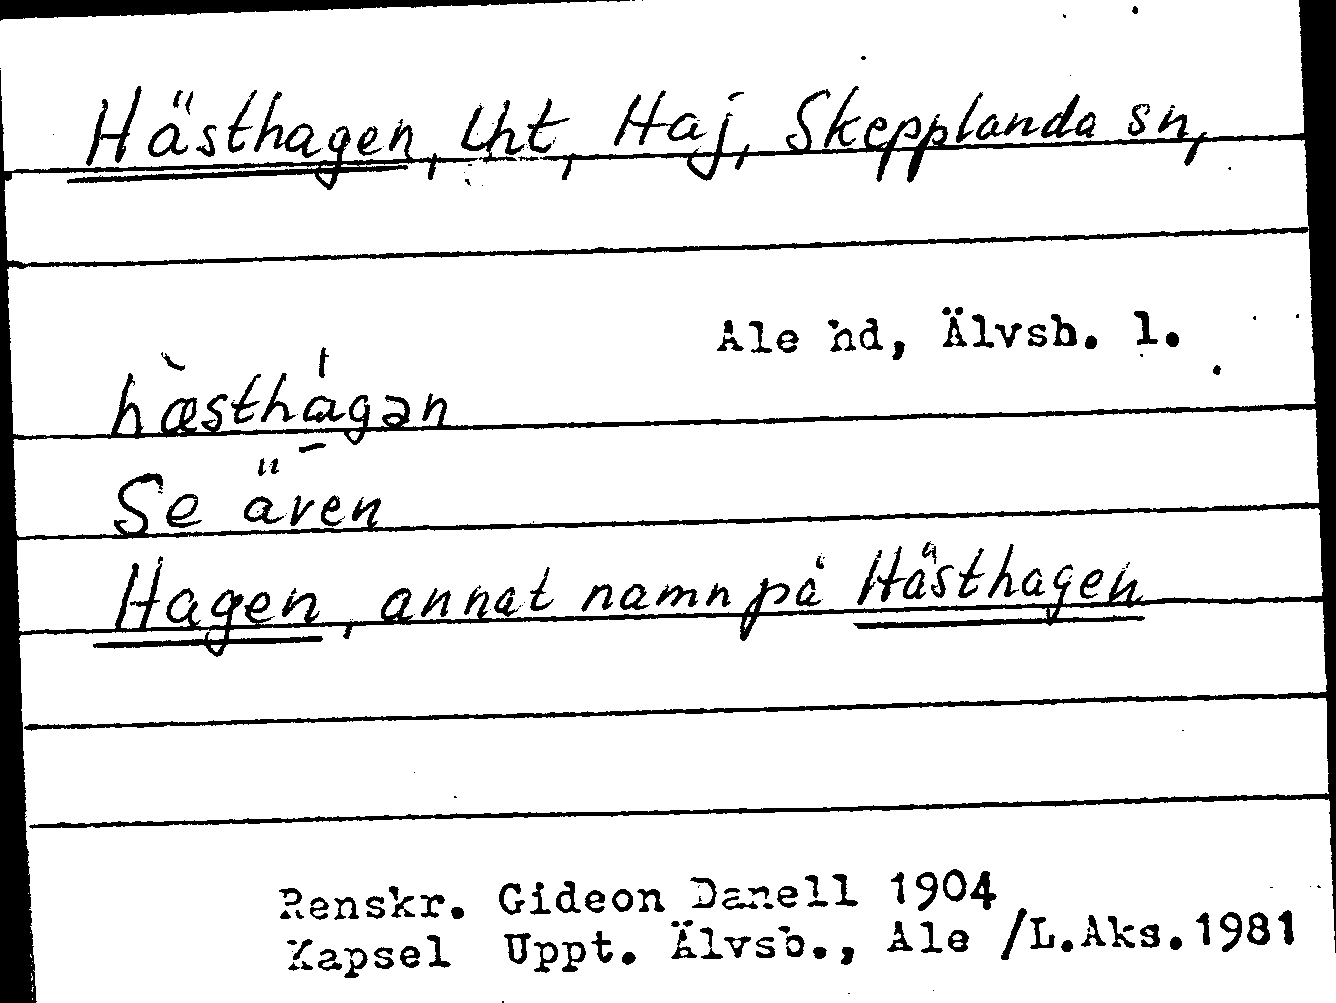 Hästhagen, lht, Haj, Skepplanda sn,
Ale hd, Älvsb. l.
hæ̀sthá̱gən
Se även
Hagen, annat namn på Hästhagen
Renskr. Gideon Danell 1904
Kapsel Uppt. Älvsb., Ale /L.Aks.1981